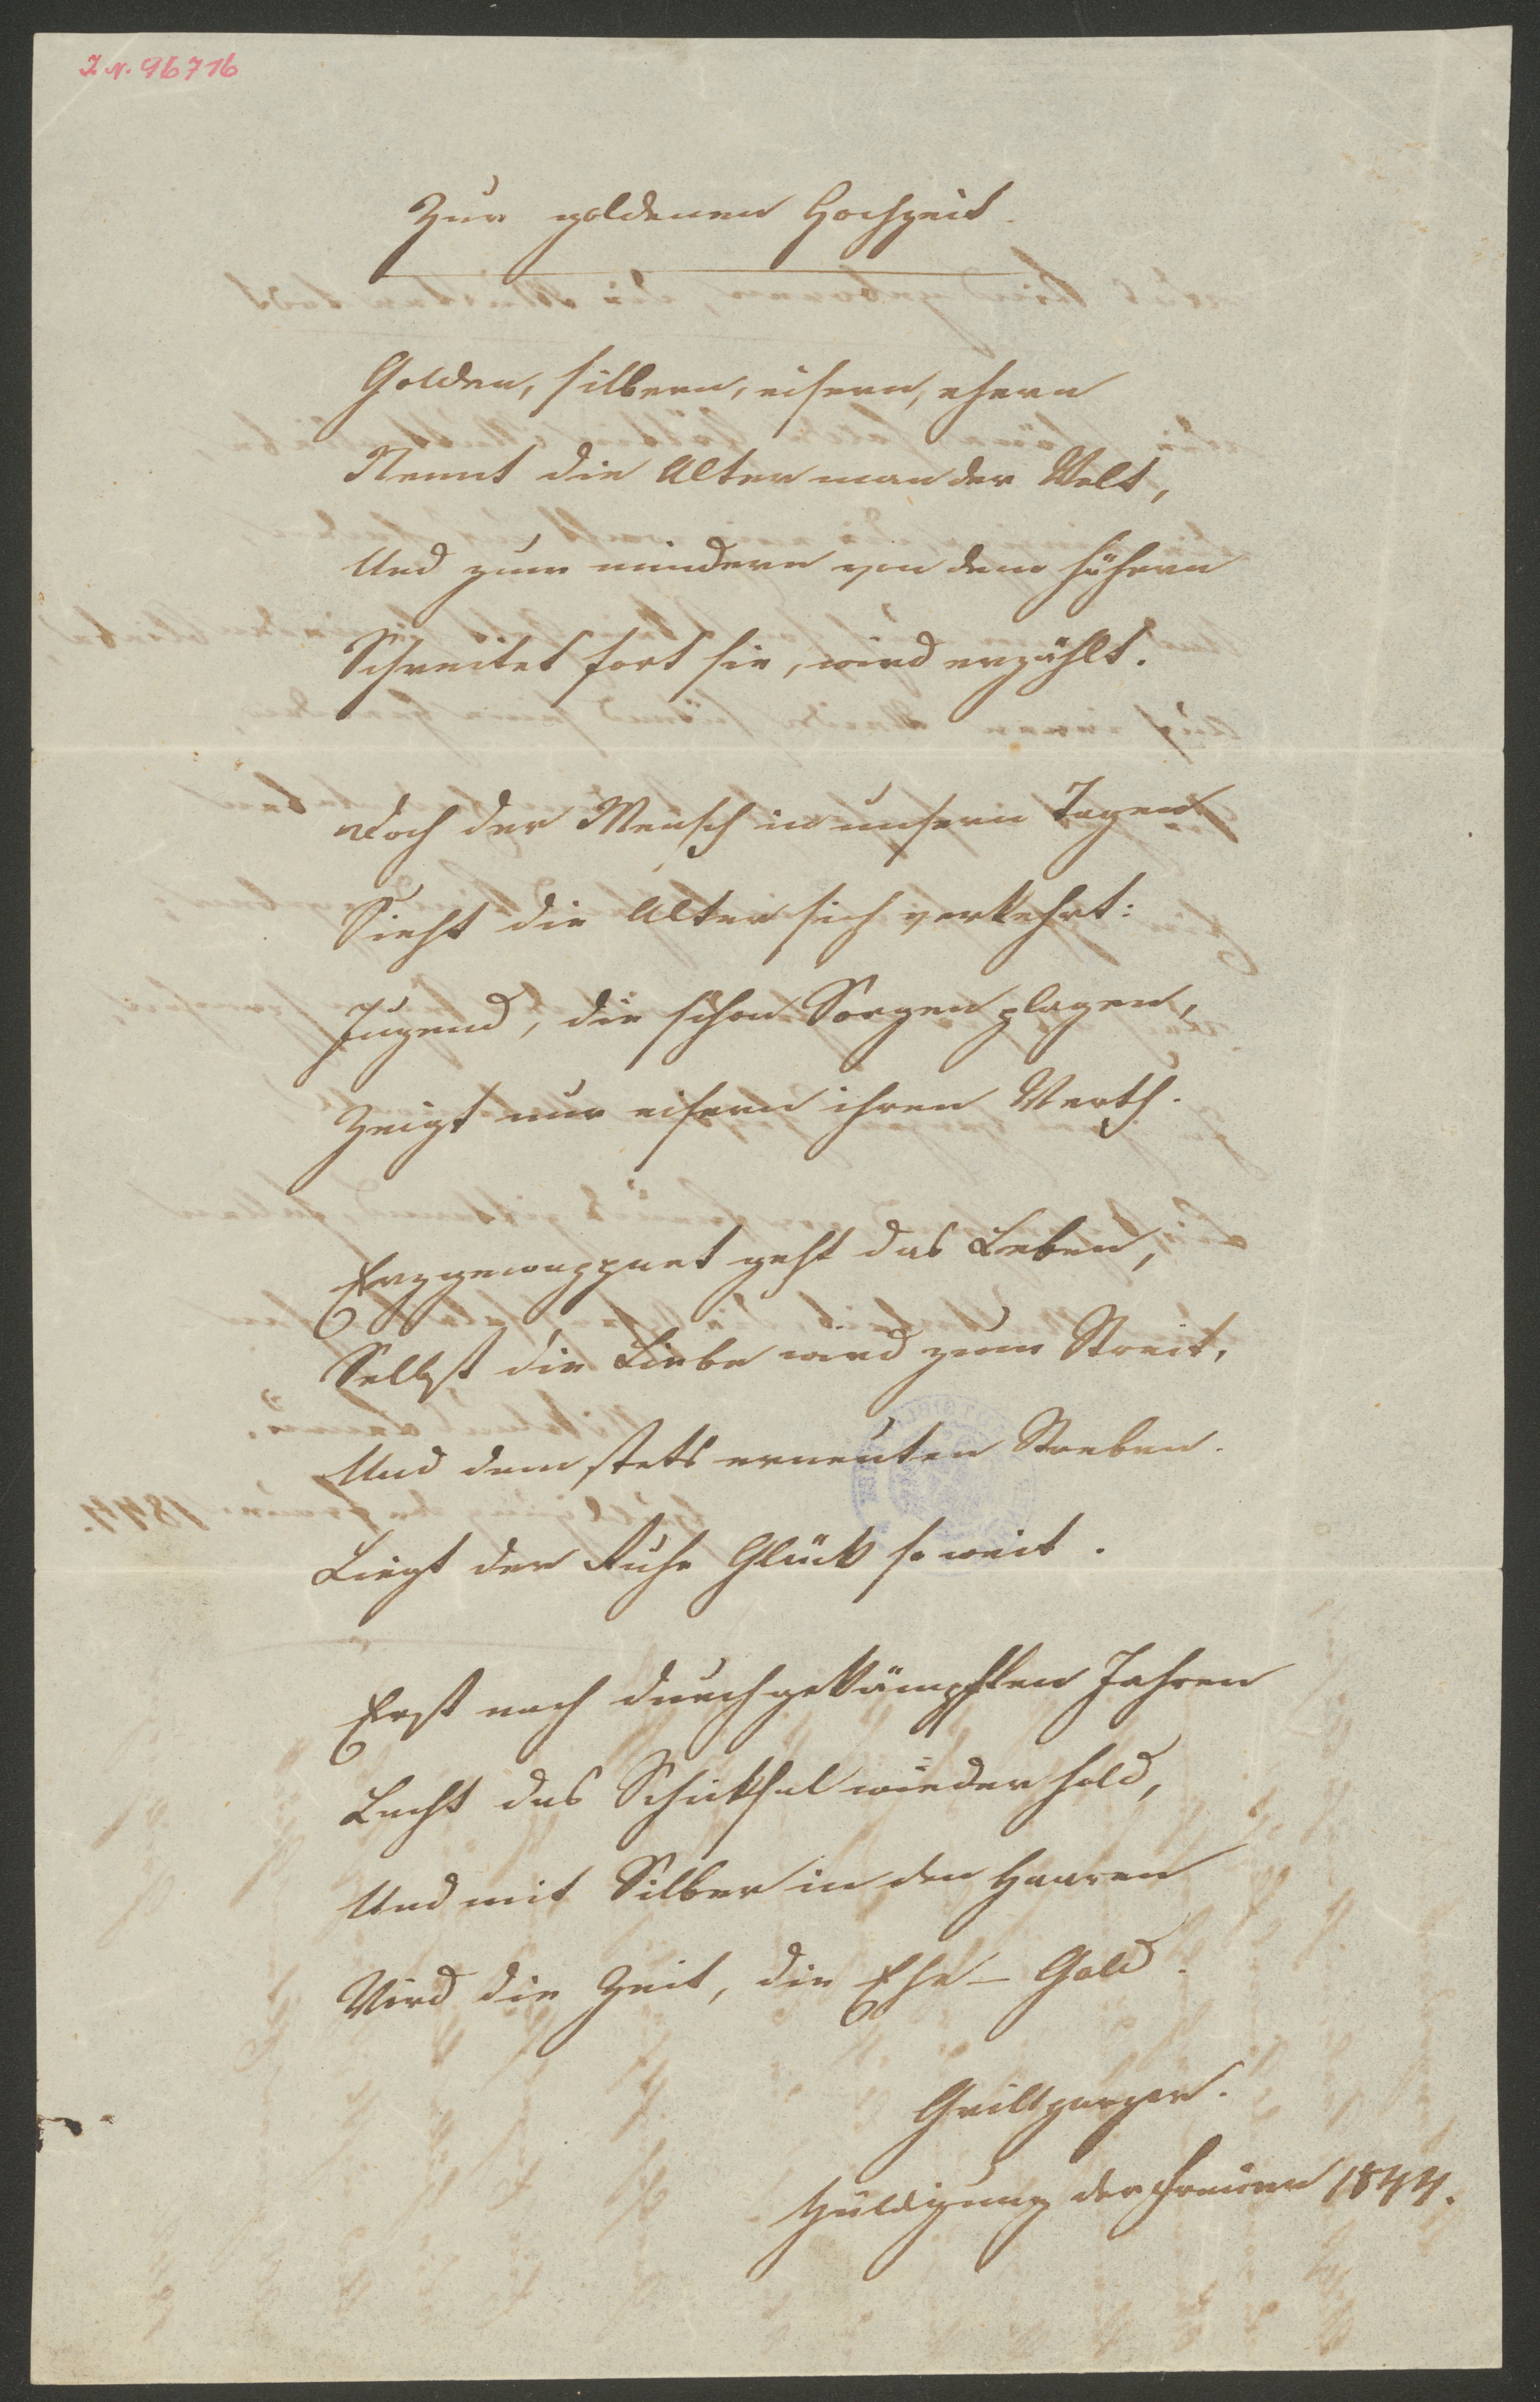 I. N. 96716
Zur goldenen Hochzeit.
Golden, silbern, eisern, ehern
Nennt die Alter man der Welt,
Und zum mindern von dem höhern
Schreitet fort sie, wird erzählt.
Doch der Mensch in unsern Tagen
Sieht die Alter sich verkehrt:
Jugend, die schon Sorgen plagen,
Zeigt nur eisern ihren Werth.
Erzgewappnet geht das Leben,
Selbst die Liebe wird zum Streit,
Und dem stets erneuten Streben
Liegt der Ruhe Glück so weit.
Erst nach durchgekämpften Jahren
Lacht das Schicksal wieder hold,
Und mit Silber in den Haaren
Wird die Zeit, die Ehe – Gold.
Grillparzer.
Huldigung der Frauen 1844.